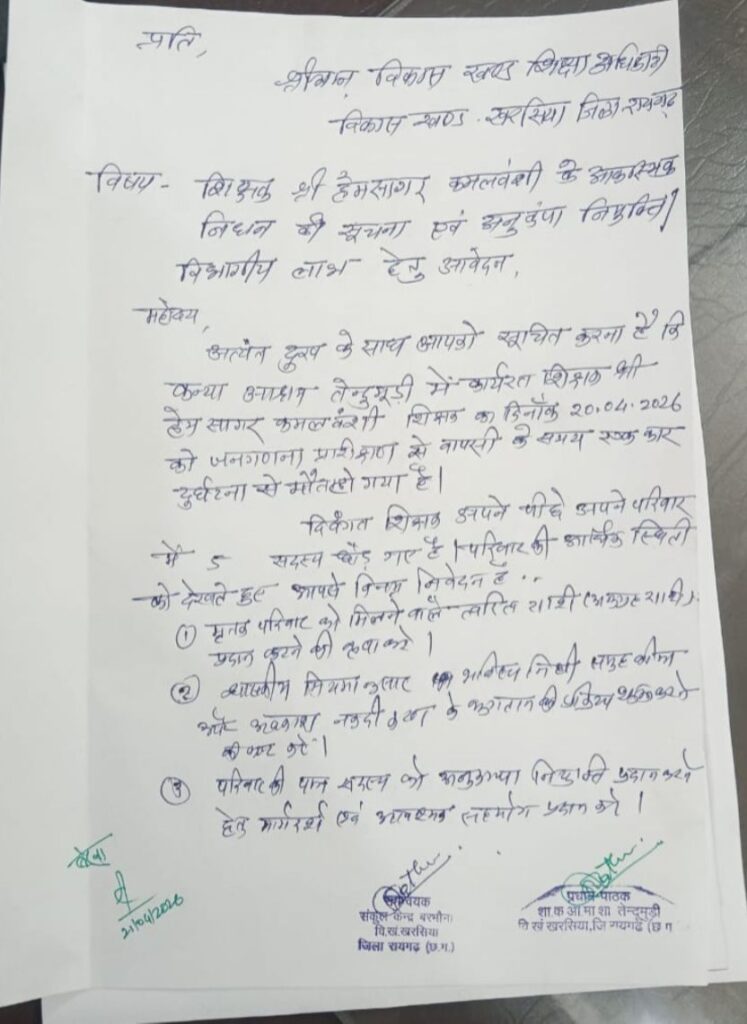 प्रति,
श्रीमान विकास खण्ड शिक्षा अधिकारी
विकास खण्ड. खरसिया जिला रायगढ़
विषय - शिक्षक श्री हेमसागर कमलवंशी के आकस्मिक
निधन की सूचना एवं अनुकंपा नियुक्ति/
विभागीय लाभ हेतु आवेदन,
महोदय,
अत्यंत दुख के साथ आपको सूचित करना है कि
कन्या आश्रम तेन्दुमुड़ी में कार्यरत शिक्षक श्री
हेम सागर कमलवंशी शिक्षक का दिनाँक 20.04.2026
को जनगणना प्रशिक्षण से वापसी के समय सड़क कार
दुर्घटना से मौत हो गया है।
दिवंगत शिक्षक अपने पीछे अपने परिवार
में 5 सदस्य छोड़ गए है। परिवार की आर्थिक स्थिती
को देखते हुए आपसे विनम्र निवेदन है..
① मृतक परिवार को मिलने वाले त्वरित राशी (अनुग्रह राशी)
प्रदान करने की कृपा करे।
② शासकीय नियमानुसार भविष्य निधी समूह बीमा
और अवकाश नकदीकरण के भुगतान की प्रक्रिया
की कष्ट करे।
③ परिवार की पात्र सदस्य को अनुकम्पा नियुक्ति प्रदान करने
हेतु मार्गदर्श एवं आवश्यक सहयोग प्रदान करे।
21/04/2026
समन्वयक
संकुल केन्द्र बरभौना
वि.खं.खरसिया
जिला रायगढ़ (छ.ग.)
प्रधान पाठक
शा.क आ मा शा तेन्दुमुड़ी
वि खं खरसिया, जि रायगढ़ (छ ग